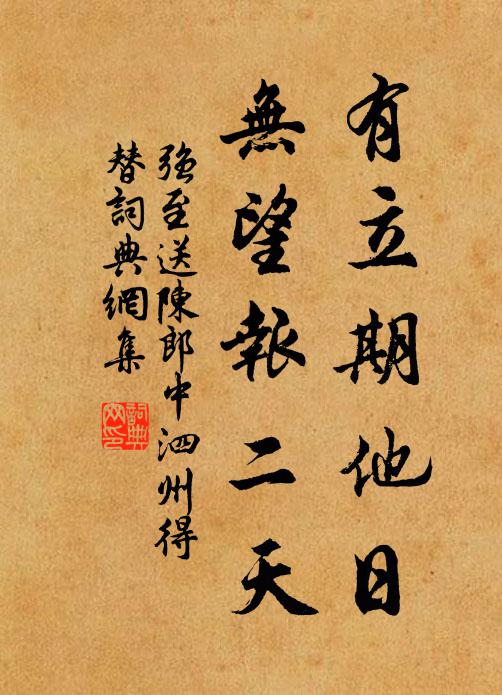 有立期他日
無望報二天
強至送陳郎中泗州得
替詞典網集
詞典
网印